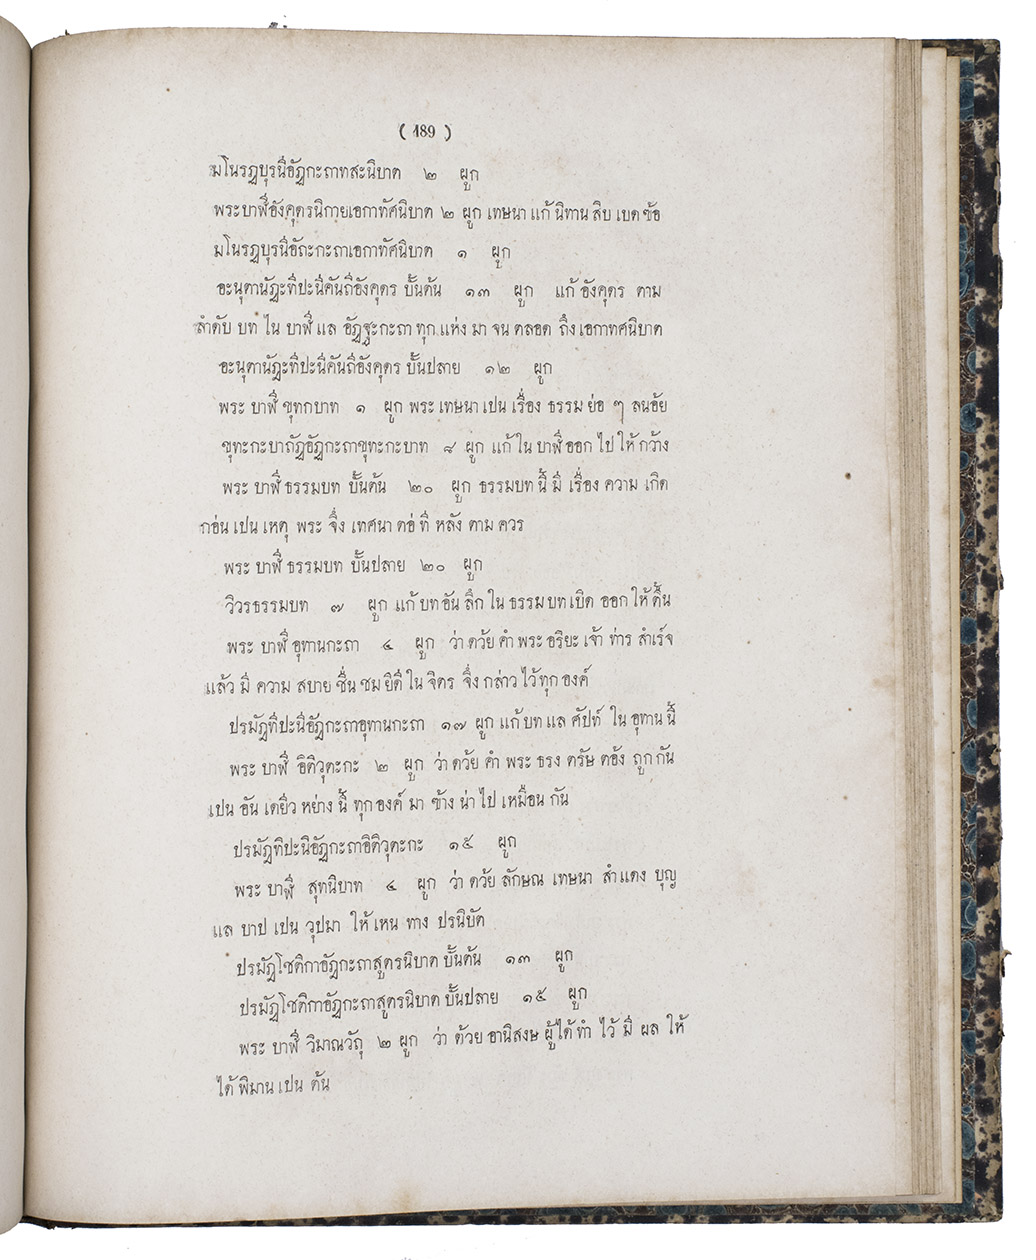 ( 189 )
มโนรฏบุรนีอัฏกะถาทสะนิบาต ๒ ผูก
พระบาฬีอังคุตรนิกายเอกาทัศนิบาต ๒ ผูก เทษนา แก้ นิทาน สิบ เบด ข้อ
มโนรฏบุรนีอัถะกะถาเอกาทัศนิบาต ๑ ผูก
อะนุตานัฏะทีปะนีคันถีอังคุตร บั้นต้น ๑๓ ผูก แก้ อังคุตร ตาม
ลำดับ บท ใน บาฬี แล อัฏฐะกะถา ทุก แห่ง มา จน ตลอด ถึง เอกาทศนิบาต
อะนุตานัฏะทีปะนีคันถีอังคุตร บั้นปลาย ๑๒ ผูก
พระ บาฬี ขุทกบาท ๑ ผูก พระ เทษนา เปน เรื่อง ธรรม ย่อ ๆ ลนอ้ย
ขุทะกะบาถัฏอัฏกะถาขุทะกะบาท ๘ ผูก แก้ ใน บาฬี ออก ไป ให้ กว้าง
พระ บาฬี ธรรมบท บั้นต้น ๒๐ ผูก ธรรมบท นี้ มี เรื่อง ความ เกิด
กอ่น เปน เหตุ พระ จึ่ง เทศนา ตอ่ ที หลัง ตาม ควร
พระ บาฬี ธรรมบท บั้นปลาย ๒๐ ผูก
วิวรธรรมบท ๗ ผูก แก้ บท อัน ลึก ใน ธรรม บท เบิด ออก ให้ ตื้น
พระ บาฬี อุทานกะถา ๔ ผูก ว่า ดว้ย คำ พระ อริยะ เจ้า ท่าร สำเร็จ
แล้ว มี ความ สบาย ชื่น ชม ยิดี ใน จิตร จึ่ง กล่าว ไว้ ทุก องค์
ปรมัฏทีปะนีอัฏกะถาอุทานกะถา ๑๗ ผูก แก้ บท แล ศัปท์ ใน อุทาน นี้
พระ บาฬี อิติวุตะกะ ๒ ผูก ว่า ดว้ย คำ พระ ธรง ตรัษ ตอ้ง ถูก กัน
เปน อัน เดยิ่ว หย่าง นี้ ทุก องค์ มา ช้าง น่า ไป เหมือน กัน
ปรมัฏทิปะนิอัฏกะถาอิติวุตะกะ ๑๕ ผูก
พระ บาฬี สุทนิบาท ๔ ผูก ว่า ดว้ย ลักษณ เทษนา สำแดง บุญ
แล บาป เปน วุปมา ให้ เหน ทาง ปรนิบัต
ปรมัฏโชติกาอัฏกะถาสูตรนิบาต บั้นต้น ๑๓ ผูก
ปรมัฏโชติกาอัฏกะถาสูตรนิบาต บั้นปลาย ๑๕ ผูก
พระ บาฬี วิมาณวัถุ ๒ ผูก ว่า ด้วย อานิสงษ ผู้ ได้ ทำ ไว้ มี ผล ให้
ได้ พิมาน เปน ต้น